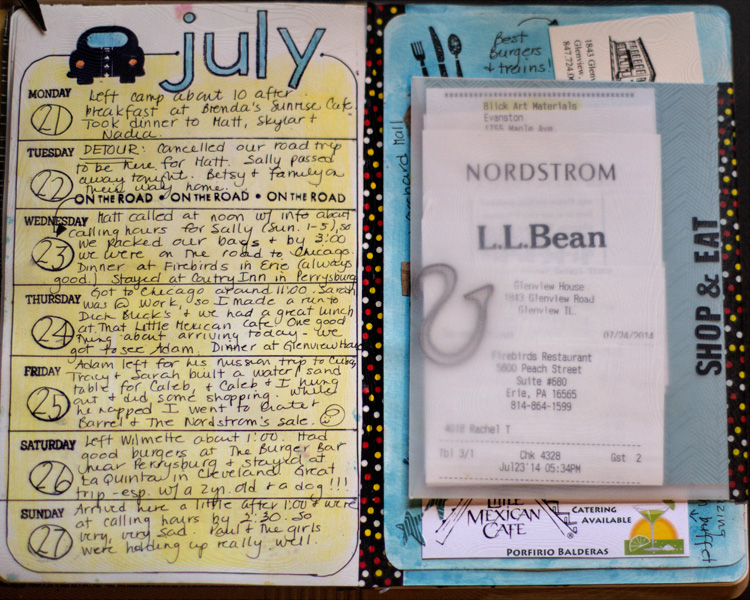 july
MONDAY
21
Left camp about 10 after
breakfast at Brenda's Sunrise Cafe.
Took dinner to Matt, Skylar +
Nadia.
TUESDAY
22
DETOUR: Cancelled our road trip
to be here for Matt. Sally passed
away tonight. Betsy & family on
their way home.
ON THE ROAD • ON THE ROAD • ON THE ROAD
WEDNESDAY
23
Matt called at noon w/ info about
calling hours for Sally (Sun. 1-5), so
we packed our bags & by 3:00
we were on the road to Chicago.
Dinner at Firebirds in Erie (always
good.) Stayed at Coutry Inn in Perrysburg
THURSDAY
24
Got to Chicago around 11:00. Sarah
was @ work, so I made a run to
Dick Blick's & we had a great lunch
at That Little Mexican Cafe. One good
thing about arriving today - we
got to see Adam. Dinner at Glenview Hou
FRIDAY
25
Adam left for his Russian trip to Cuba,
Tracy & Sarah built a water/sand
table for Caleb, & Caleb & I hung
out & did some shopping. While
he napped I went to Crate &
Barrel & The Nordstrom's sale.
SATURDAY
26
Left Wilmette about 1:00. Had
good burgers at The Burger Bar
near Perrysburg & stayed at
La Quinta in Cleveland. Great
trip - esp. w/ a 2 yr. old & a dog!!!
SUNDAY
27
Arrived here a little after 1:00 & were
at calling hours by 2:30. So
very, very sad. Paul & the girls
were holding up really well.
Best
Burgers
& trains!
1843 Glen
Glenview,
847.724.0
orchard Mall
Blick Art Materials
Evanston
1755 Maple Ave.
NORDSTROM
L.L.Bean
Glenview House
1843 Glenview Road
Glenview IL
07/24/2014
Firebirds Restaurant
5800 Peach Street
Suite #680
Erie, PA 16565
814-864-1599
4018 Rachel T
Tbl 3/1 Chk 4328 Gst 2
Jul23'14 05:34PM
SHOP & EAT
LITTLE
MEXICAN
CAFE
CATERING
AVAILABLE
PORFIRIO BALDERAS
zing
buffet